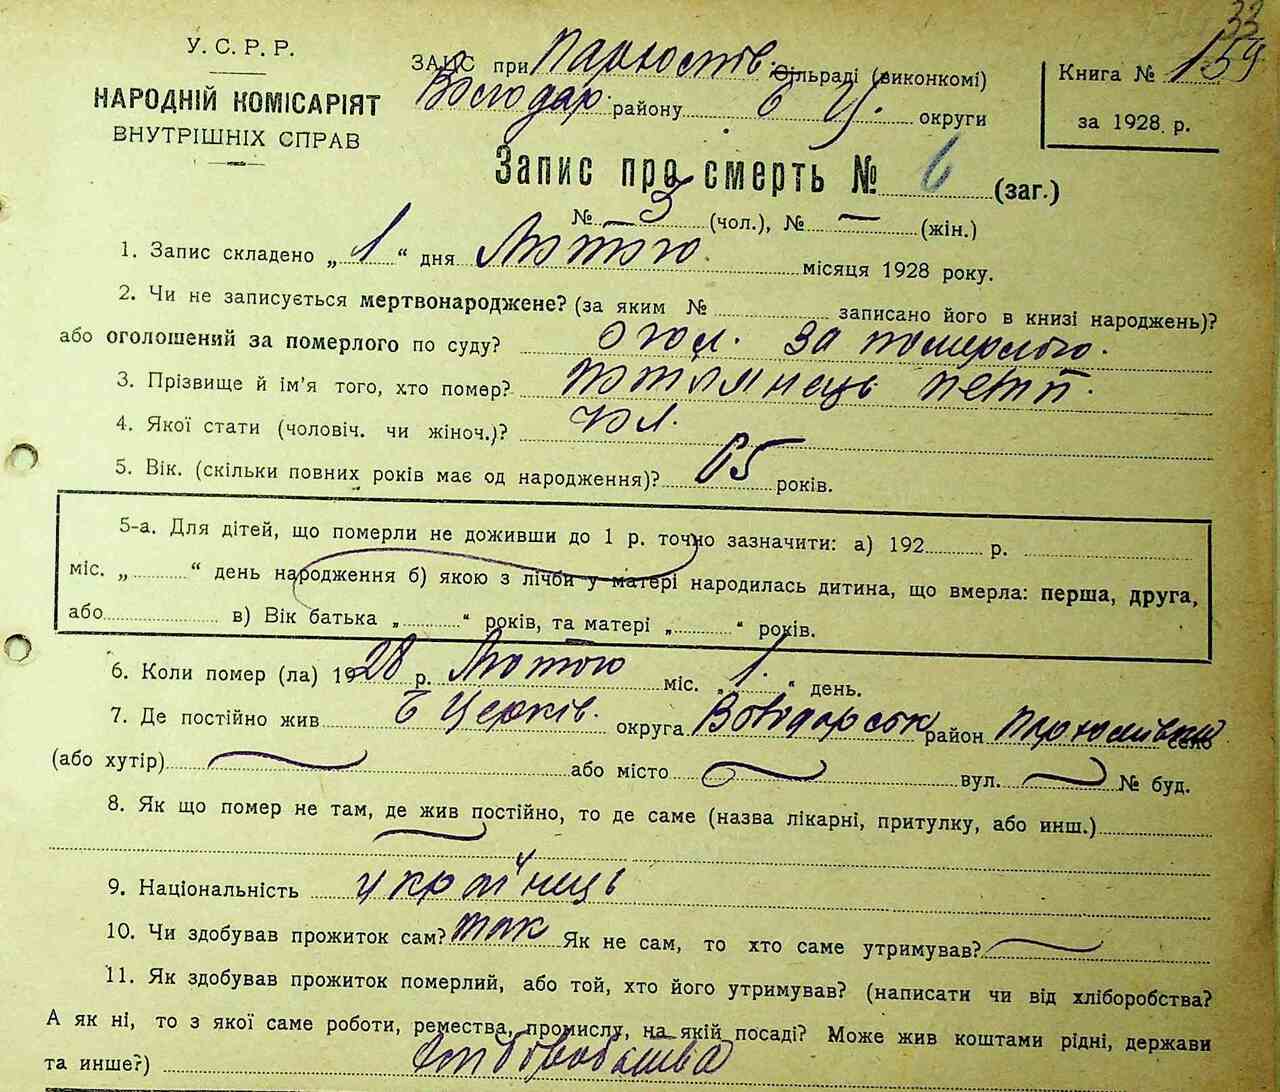 33
159
У. С. Р. Р.
НАРОДНІЙ КОМІСАРІЯТ
ВНУТРІШНІХ СПРАВ
ЗАПИС при Пархомів. сільраді (виконкомі)
Володар. району Б Ц. округи
Книга №
за 1928 р.
Запис про смерть № 6 (заг.)
№ 3 (чол.), № — (жін.)
1. Запис складено „ 1 “ дня Лютого місяця 1928 року.
2. Чи не записується мертвонароджене? (за яким № записано його в книзі народжень)?
або оголошений за померлого по суду? огол. за померлого.
3. Прізвище й ім’я того, хто помер? Петп.
4. Якої стати (чоловіч. чи жіноч.)? чол.
5. Вік. (скільки повних років має од народження)? 65 років.
5-а. Для дітей, що померли не доживши до 1 р. точно зазначити: а) 192 р.
міс. „ “ день народження б) якою з лічби у матері народилась дитина, що вмерла: перша, друга,
або в) Вік батька „ “ років, та матері „ “ років.
6. Коли помер (ла) 1928 р. Лютого міс. „ 1 “ день.
7. Де постійно жив Б Церків. округа Володарськ район село
(або хутір) або місто вул. № буд.
8. Як що помер не там, де жив постійно, то де саме (назва лікарні, притулку, або инш.)
9. Національність українець
10. Чи здобував прожиток сам? так Як не сам, то хто саме утримував?
11. Як здобував прожиток померлий, або той, хто його утримував? (написати чи від хліборобства?
А як ні, то з якої саме роботи, ремества, промислу, на якій посаді? Може жив коштами рідні, держави
та инше?) хліборобства